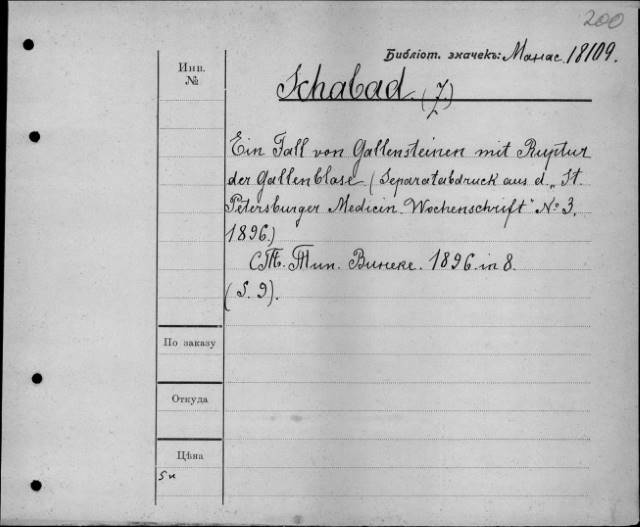 200
Библіот. значекъ: Манас. 18109.
Инв.
№
Schabad. (J.)
Ein Fall von Gallensteinen mit Ruptur
der Gallenblase. (Separatabdruck aus d. „St.
Petersburger Medicin. Wochenschrift" № 3.
1896.)
СПб. Тип. Винеке. 1896. in 8.
(S. 9).
По заказу
Откуда
Цѣна